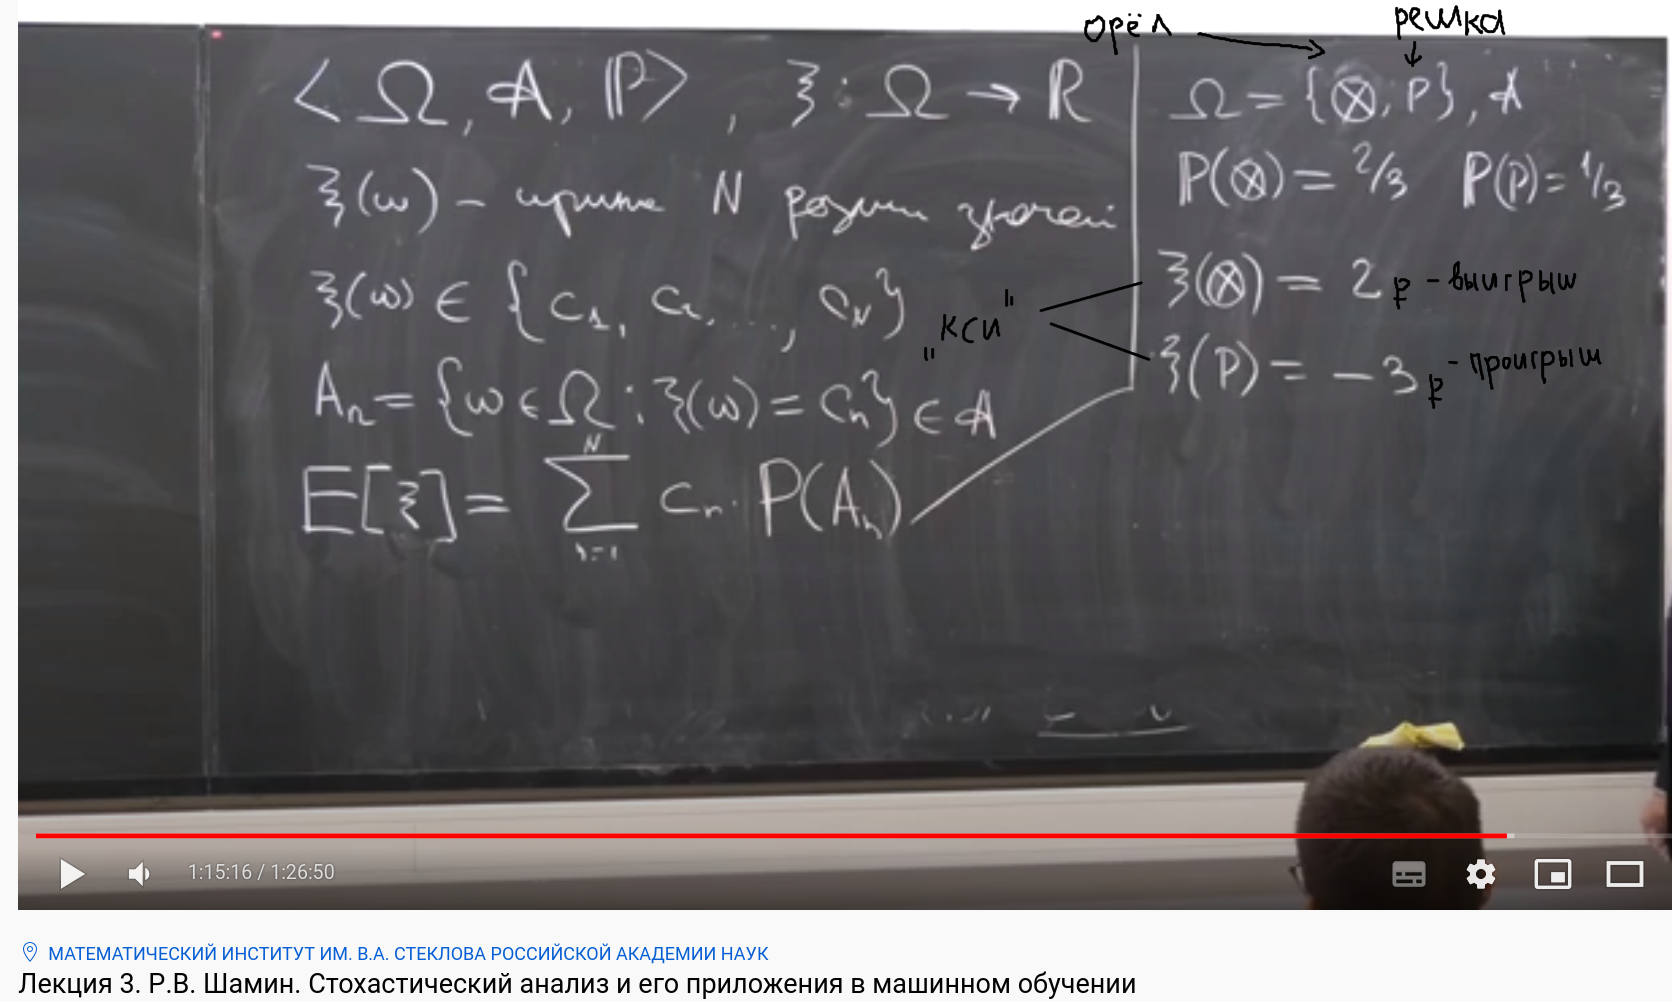 орёл решка
< Ω, 𝔸, ℙ> , ξ : Ω → ℝ
ξ(ω) – N
ξ(ω) ∈ { c₁, c₂, ..., c_N }
A_n = { ω ∈ Ω : ξ(ω) = c_n } ∈ 𝔸
E[ξ] = ∑_{n=1}^{N} c_n · P(A_n)
Ω = {⊗, P}, 𝔸
ℙ(⊗) = 2/3 ℙ(P) = 1/3
"кси"
ξ(⊗) = 2 ₽ - выигрыш
ξ(P) = -3 ₽ - проигрыш
1:15:16 / 1:26:50
МАТЕМАТИЧЕСКИЙ ИНСТИТУТ ИМ. В.А. СТЕКЛОВА РОССИЙСКОЙ АКАДЕМИИ НАУК
Лекция 3. Р.В. Шамин. Стохастический анализ и его приложения в машинном обучении